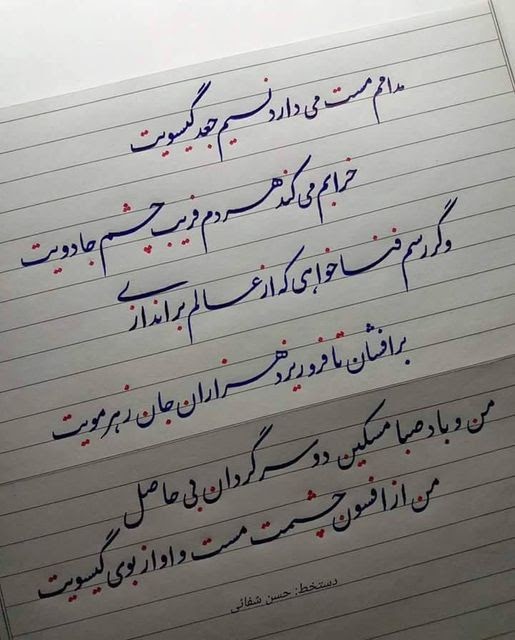 مدامم مست می دارد نسیم جعد گیسویت
خرابم می کند هر دم فریب چشم جادویت
وگر رسم فنا خواهی که از عالم براندازی
برافشان تا فرو ریزد هزاران جان ز هر مویت
من و باد صبا مسکین دو سرگردان بی حاصل
من از افسون چشمت مست و او از بوی گیسویت
دستخط: حسن شفائی